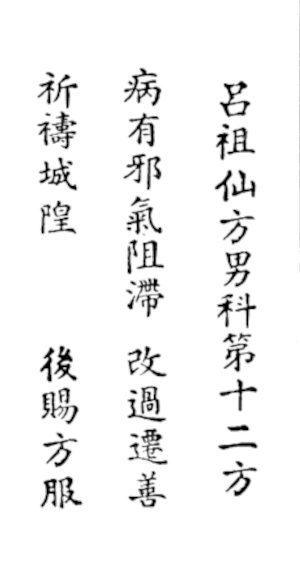 呂祖仙方男科第十二方
病有邪氣阻滯 改過遷善
祈禱城隍 後賜方服